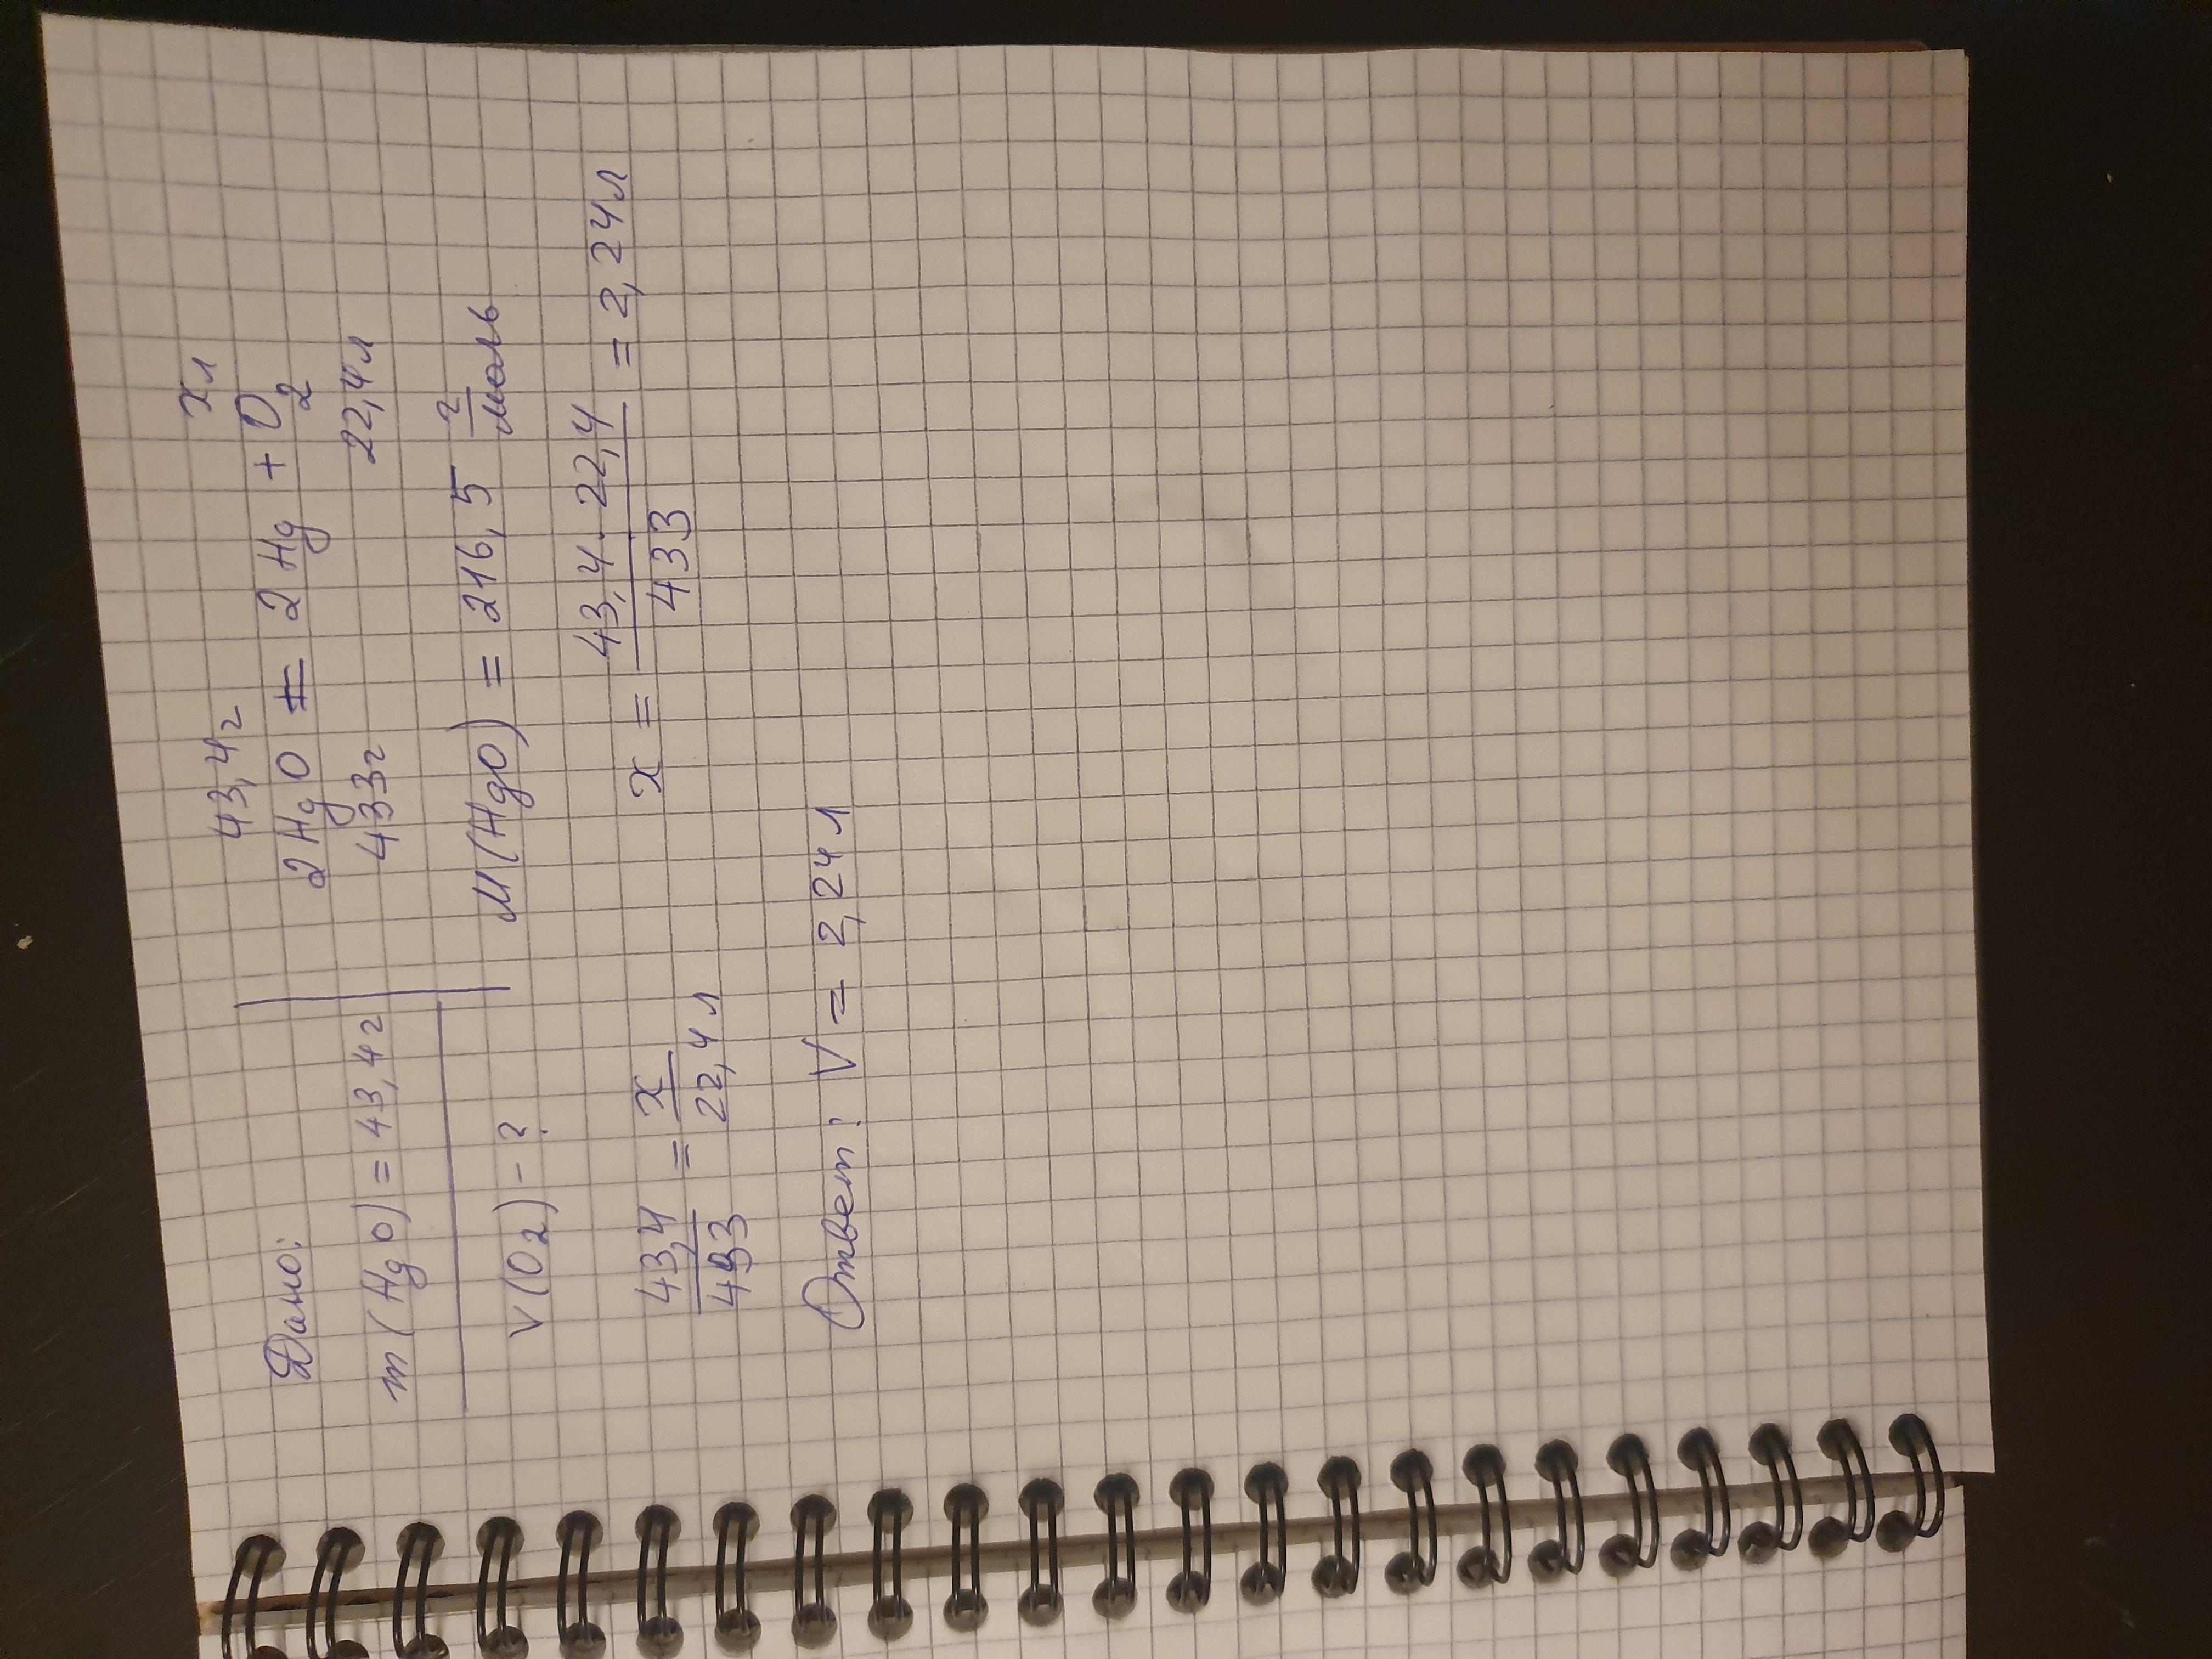 43,4г хл
Дано: 2HgO = 2Hg + O2
m(HgO) = 43,4г 433г 22,4л
V(O2) - ? M(HgO) = 216,5 г/моль
43,4/433 = x/22,4л x = 43,4·22,4/433 = 2,24л
Ответ: V = 2,24л